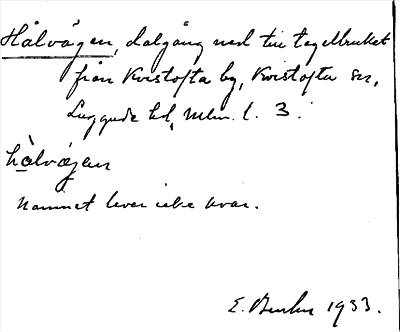 Hålvägen, dalgång ned till tegelbruket
från Kvistofta by, Kvistofta sn,
Luggude hd, Mlm. l. 3.
hålvägen
Namnet lever icke kvar.
E. 1933.